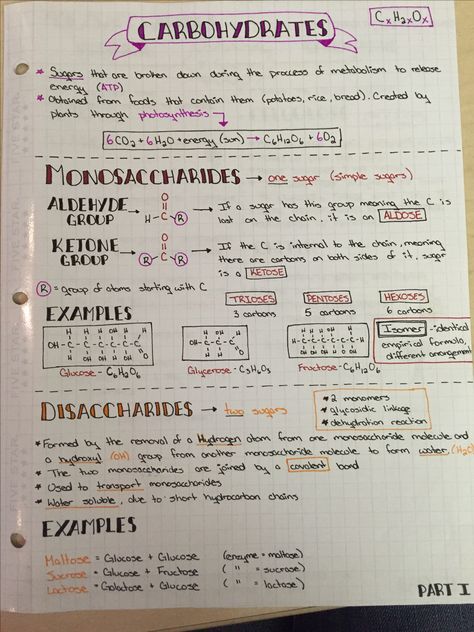 CARBOHYDRATES
CxH2xOx
* Sugars that are broken down during the process of metabolism to release
energy (ATP)
* Obtained from foods that contain them (potatoes, rice, bread). Created by
plants through photosynthesis
6CO2 + 6H2O + energy (sun) → C6H12O6 + 6O2
MONOSACCHARIDES → one sugar (simple sugars)
ALDEHYDE GROUP → O H-C-R → If a sugar has this group meaning the C is
last on the chain, it is an ALDOSE
KETONE GROUP → O R-C-R → If the C is internal to the chain, meaning
there are carbons on both sides of it, sugar
is a KETOSE
R = group of atoms starting with C
TRIOSES PENTOSES HEXOSES
3 carbons 5 carbons 6 carbons
EXAMPLES
Isomer - identical
empirical formula,
different arrangement
Glucose - C6H12O6 Glycerose - C3H6O3 Fructose - C6H12O6
DISACCHARIDES → two sugars
* 2 monomers
* glycosidic linkage
* dehydration reaction
* Formed by the removal of a Hydrogen atom from one monosaccharide molecule and
a hydroxyl (OH) group from another monosaccharide molecule to form water (H2O)
* The two monosaccharides are joined by a covalent bond
* Used to transport monosaccharides
* Water soluble, due to short hydrocarbon chains
EXAMPLES
Maltose = Glucose + Glucose (enzyme = maltase)
Sucrose = Glucose + Fructose ( " = sucrase)
Lactose = Galactose + Glucose ( " = lactase)
PART I